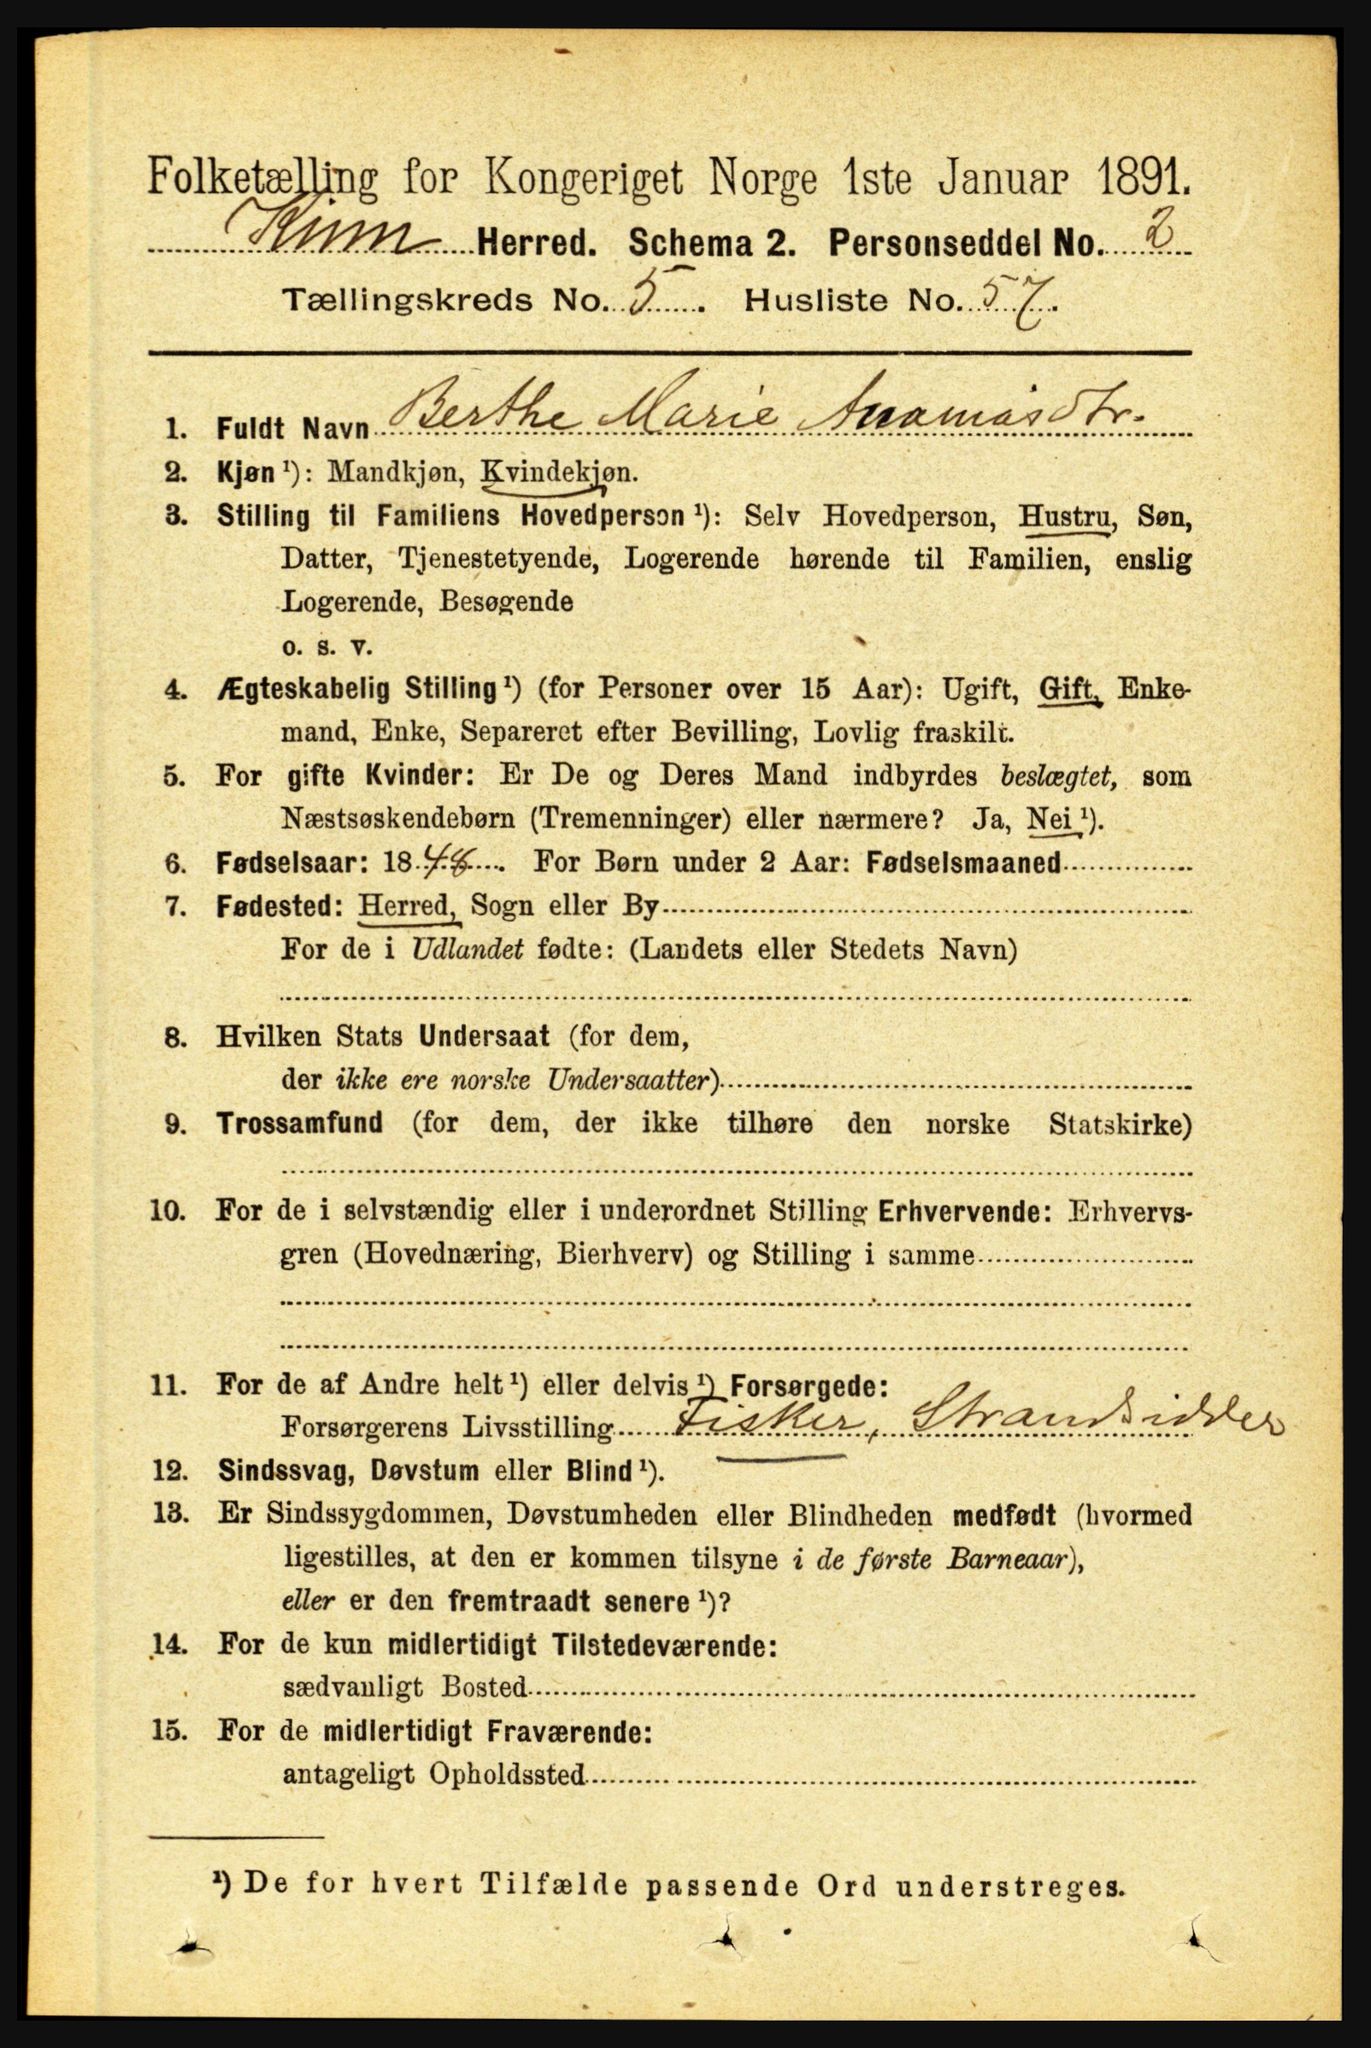 Folketælling for Kongeriget Norge 1ste Januar 1891.
Kinn Herred. Schema 2. Personseddel No. 2
Tællingskreds No. 5. Husliste No. 57.
1. Fuldt Navn Berthe Marie Ananiasdtr.
2. Kjøn ¹): Mandkjøn, Kvindekjøn.
3. Stilling til Familiens Hovedperson ¹): Selv Hovedperson, Hustru, Søn,
Datter, Tjenestetyende, Logerende hørende til Familien, enslig
Logerende, Besøgende
o. s. v.
4. Ægteskabelig Stilling ¹) (for Personer over 15 Aar): Ugift, Gift, Enke-
mand, Enke, Separeret efter Bevilling, Lovlig fraskilt.
5. For gifte Kvinder: Er De og Deres Mand indbyrdes beslægtet, som
Næstsøskendebørn (Tremenninger) eller nærmere? Ja, Nei ¹).
6. Fødselsaar: 1848. For Børn under 2 Aar: Fødselsmaaned
7. Fødested: Herred, Sogn eller By
For de i Udlandet fødte: (Landets eller Stedets Navn)
8. Hvilken Stats Undersaat (for dem,
der ikke ere norske Undersaatter)
9. Trossamfund (for dem, der ikke tilhøre den norske Statskirke)
10. For de i selvstændig eller i underordnet Stilling Erhvervende: Erhvervs-
gren (Hovednæring, Bierhverv) og Stilling i samme
11. For de af Andre helt ¹) eller delvis ¹) Forsørgede:
Forsørgerens Livsstilling Fisker, Strandsidder
12. Sindssvag, Døvstum eller Blind ¹).
13. Er Sindssygdommen, Døvstumheden eller Blindheden medfødt (hvormed
ligestilles, at den er kommen tilsyne i de første Barneaar),
eller er den fremtraadt senere ¹)?
14. For de kun midlertidigt Tilstedeværende:
sædvanligt Bosted
15. For de midlertidigt Fraværende:
antageligt Opholdssted
¹) De for hvert Tilfælde passende Ord understreges.